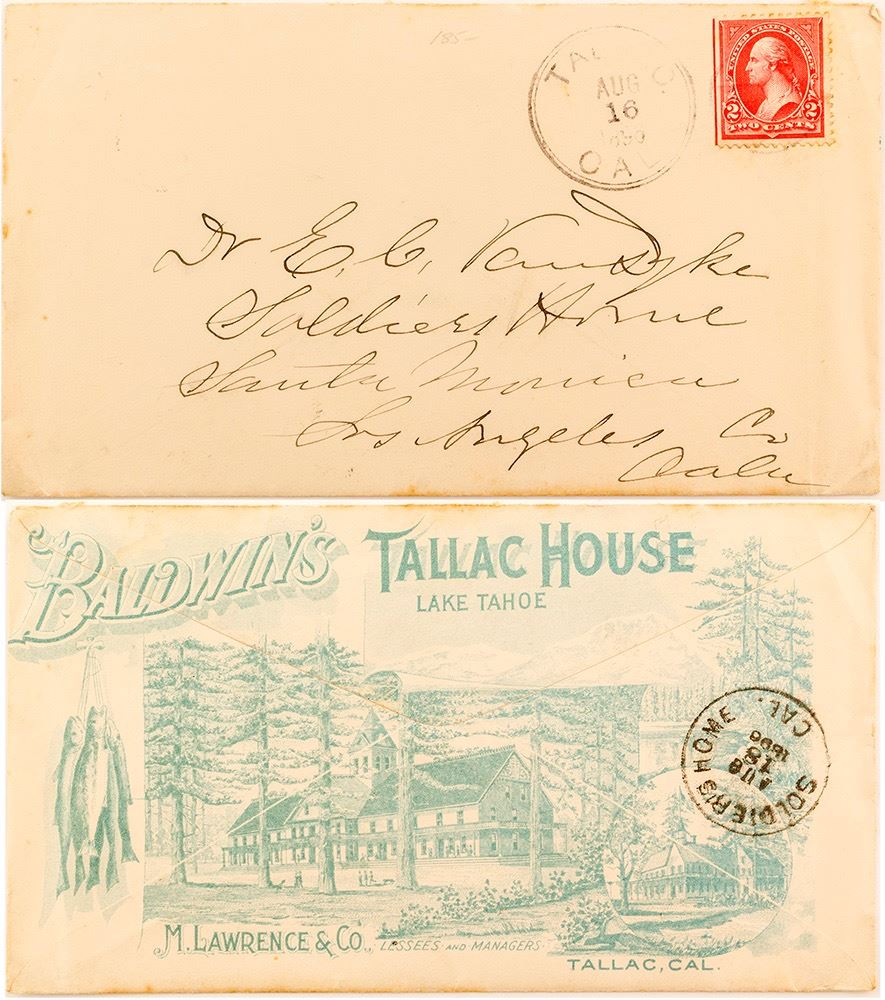 185-
TALLAC
AUG
16
CAL
UNITED STATES POSTAGE
2 2
TWO CENTS
Dr E. C. Vandyke
Soldiers Home
Santa Monica
Los Angeles Co
Cala
BALDWIN'S TALLAC HOUSE
LAKE TAHOE
SOLDIER'S HOME CAL.
AUG
18
1896
M. LAWRENCE & CO., LESSEES AND MANAGERS
TALLAC, CAL.